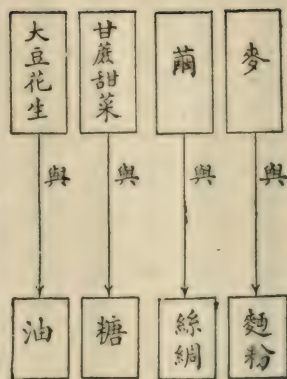 麥
與
麵粉
繭
與
絲綢
甘蔗甜菜
與
糖
大豆花生
與
油